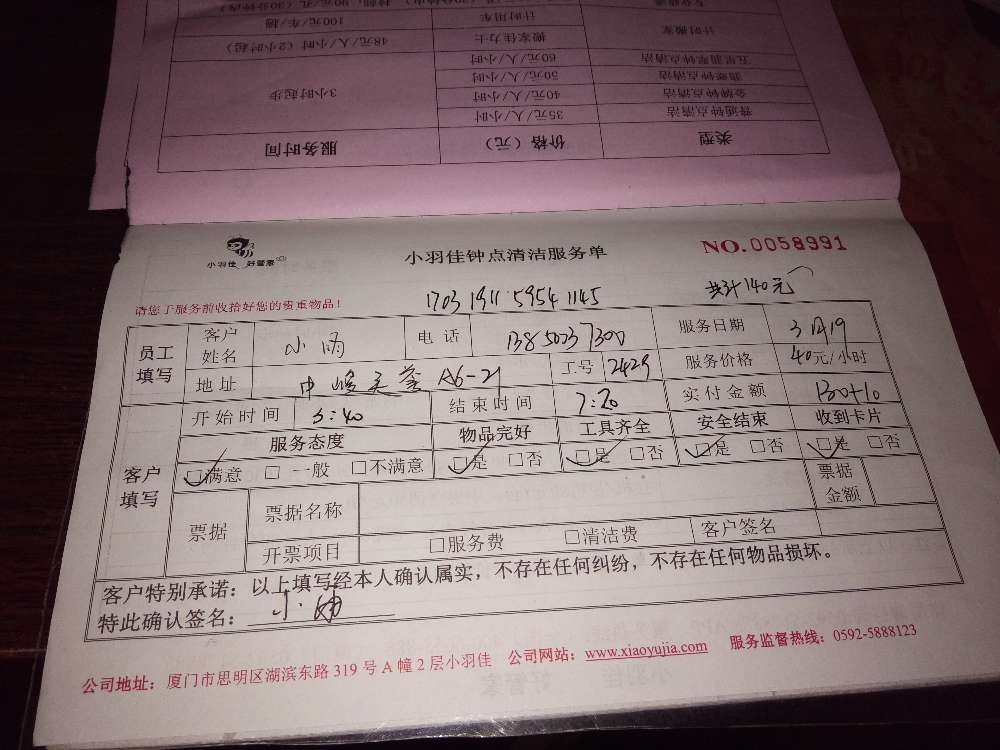 专业擦玻
计时搬家 计时用车 100元/车/趟
搬家佳力士 48元/人/小时（2小时起）
五星翡翠钟点清洁 60元/人/小时
翡翠钟点清洁 50元/人/小时
金牌钟点清洁 40元/人/小时 3小时起步
普通钟点清洁 35元/人/小时
类型 价格（元） 服务时间
小羽佳 好管家
小羽佳钟点清洁服务单
NO.0058991
请您于服务前收拾好您的贵重物品！
1703 1911 5954 1145
共计140元
员工填写 客户姓名 小雨 电话 13850237300 服务日期 3月19
地址 A6-21 工号 2429 服务价格 40元/小时
客户填写 开始时间 3:40 结束时间 7:20 实付金额 130+10
服务态度 物品完好 工具齐全 安全结束 收到卡片
☑满意 □一般 □不满意 ☑是 □否 ☑是 □否 ☑是 □否 ☑是 □否
票据 票据名称 票据金额
开票项目 □服务费 □清洁费 客户签名
客户特别承诺：以上填写经本人确认属实，不存在任何纠纷，不存在任何物品损坏。
特此确认签名：小
公司地址：厦门市思明区湖滨东路319号A幢2层小羽佳 公司网站：www.xiaoyujia.com 服务监督热线：0592-5888123